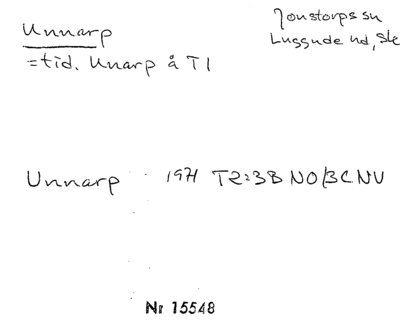 Unnarp
Jonstorps sn
Luggude hd, Sk
=tid. Unarp å T1
Unnarp 1971 T2:3B NO/3C NV
Nr 15548